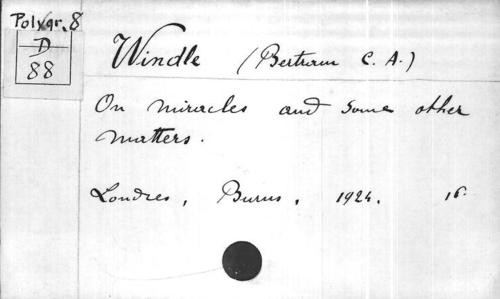 Polygr. 8
D
88
Windle (Bertram C. A.)
On miracles and some other
matters.
Londres, Burns, 1924. 16.